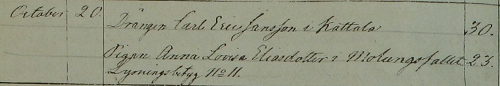 October 20. Drängen Carl Eric Jansson i Kättala 30.
Pigan Anna Lovisa Eliasdotter i Molungsfallet 23.
Lysningsbetyg No 11.